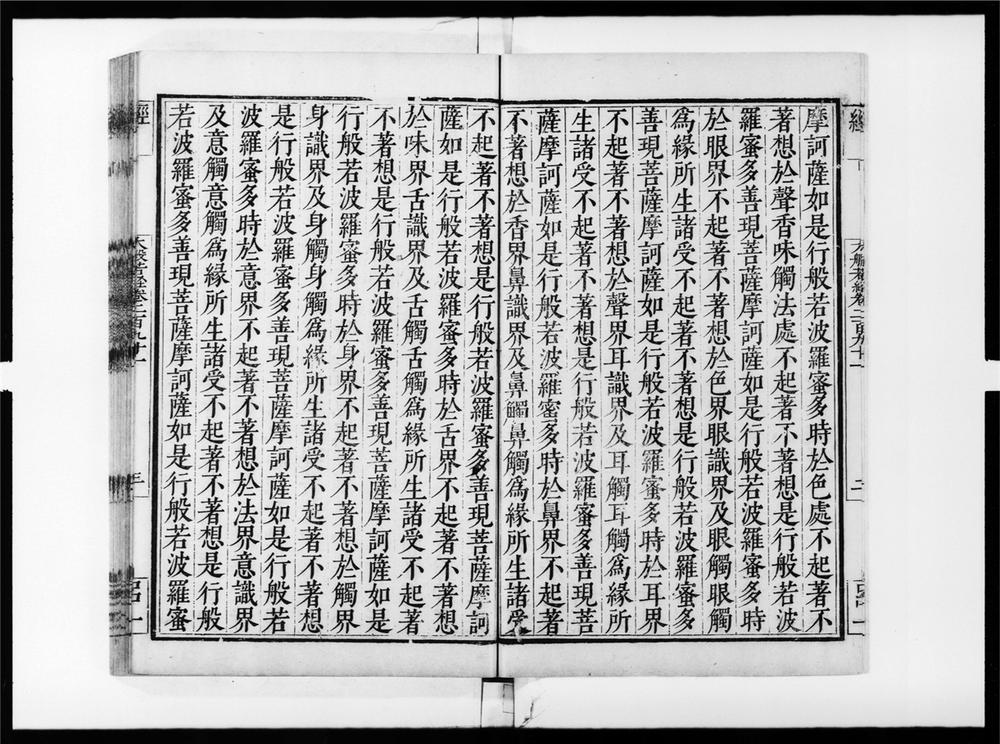 摩訶薩如是行般若波羅蜜多時於色處不起著不
著想於聲香味觸法處不起著不著想是行般若波
羅蜜多善現菩薩摩訶薩如是行般若波羅蜜多時
於眼界不起著不著想於色界眼識界及眼觸眼觸
爲緣所生諸受不起著不著想是行般若波羅蜜多
善現菩薩摩訶薩如是行般若波羅蜜多時於耳界
不起著不著想於聲界耳識界及耳觸耳觸爲緣所
生諸受不起著不著想是行般若波羅蜜多善現菩
薩摩訶薩如是行般若波羅蜜多時於鼻界不起著
不著想於香界鼻識界及鼻觸鼻觸爲緣所生諸受
不起著不著想是行般若波羅蜜多善現菩薩摩訶
薩如是行般若波羅蜜多時於舌界不起著不著想
於味界舌識界及舌觸舌觸爲緣所生諸受不起著
不著想是行般若波羅蜜多善現菩薩摩訶薩如是
行般若波羅蜜多時於身界不起著不著想於觸界
身識界及身觸身觸爲緣所生諸受不起著不著想
是行般若波羅蜜多善現菩薩摩訶薩如是行般若
波羅蜜多時於意界不起著不著想於法界意識界
及意觸意觸爲緣所生諸受不起著不著想是行般
若波羅蜜多善現菩薩摩訶薩如是行般若波羅蜜
經